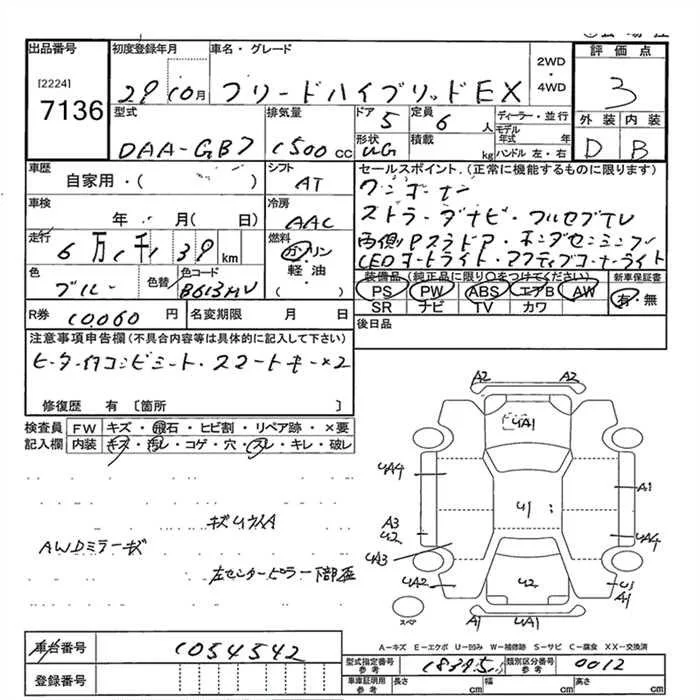 出品番号
[2224]
7136
初度登録年月
29 10月
車名・グレード
フリードハイブリッドEX
2WD
・
4WD
評価点
3
外装 内装
D B
型式
DAA-GB7
排気量
1500 cc
ドア
5
定員
6 人
ディーラー・並行
モデル年式 年
形状
UG
積載
kg
ハンドル 左・右
車歴
自家用・( )
シフト
AT
セールスポイント.(正常に機能するものに限ります)
ワンオーナー
ストラーダナビ・フルセグTV
両側Pスラドア・ホンダセンシング
LEDオートライト・アクティブコーナーライト
車検
年 月( 日)
冷房
AAC
走行
6万 1千 139 km
燃料
ガソリン
・
軽油
( )
色
ブルー
色替
色コード
B613MU
装備品(純正品に限り○をつけてください)
PS PW ABS エアB AW
SR ナビ TV カワ
新車保証書
有・無
R券 10060 円
名変期限 月 日
後日品
注意事項申告欄(不具合内容等は具体的に記入して下さい)
ヒーターイタコンビシート・スマートキー×2
修復歴 有 [箇所 ]
検査員
記入欄
FW キズ・飛石・ヒビ割・リペア跡・×要
内装 キズ・汚レ・コゲ・穴・スレ・キレ・破レ
キズUウスA
AWDミラーキズ
左センターピラー下部歪
A2 A2
UA1
UA4
A1
U1
A3
U2
UA4
UA3
UA2
U2
U1
A1
A1
UA1
スペア
A-キズ E-エクボ U-凹み W-補修跡 S-サビ C-腐食 XX-交換済
車台番号 1054542
登録番号
型式指定番号
参考
18395
類別区分番号
参考
0012
車庫証明用
参考
長さ cm 幅 cm 高さ cm